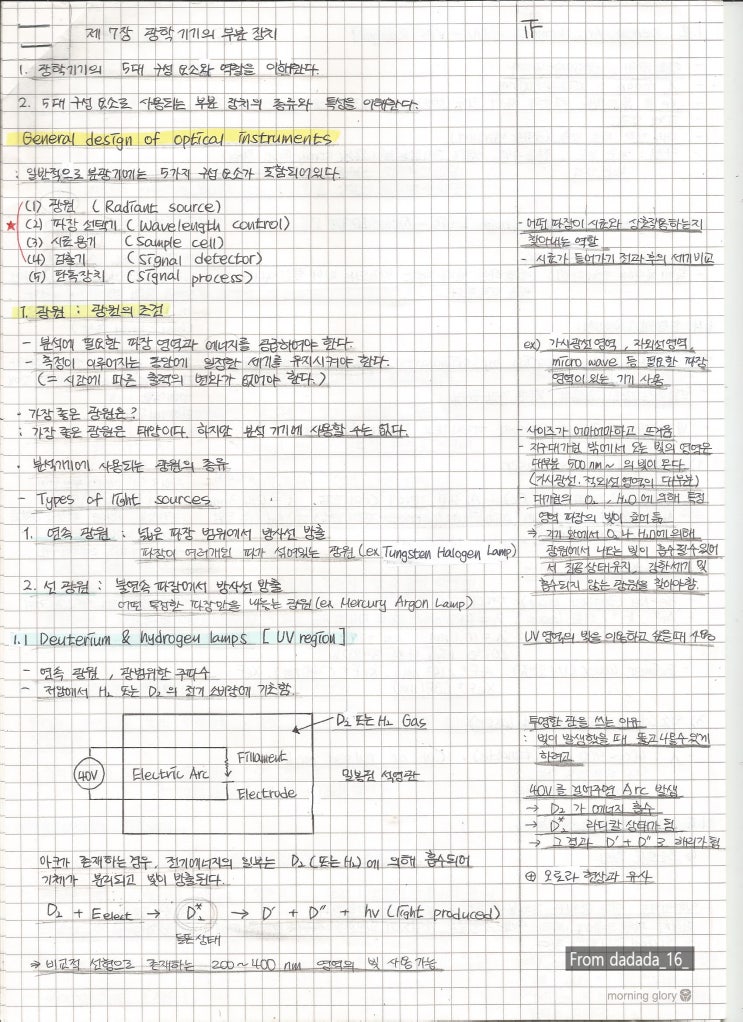 제 7장 광학기기의 부분 장치
1. 광학기기의 5대 구성 요소와 역할을 이해한다.
2. 5대 구성 요소로 사용되는 부분 장치의 종류와 특성을 이해한다.
General design of optical instruments
: 일반적으로 분광기에는 5가지 구성 요소가 포함되어있다.
(1) 광원 (Radiant source)
★ (2) 파장 선택기 (Wavelength control)
(3) 시료용기 (Sample cell)
(4) 검출기 (Signal detector)
(5) 판독장치 (Signal process)
- 어떤 파장이 시료와 상호작용하는지
찾아내는 역할
- 시료가 들어가기 전과 후의 세기비교
1. 광원 : 광원의 조건
- 분석에 필요한 파장 영역과 에너지를 공급하여야 한다.
- 측정이 이루어지는 동안에 일정한 세기를 유지시켜야 한다.
(= 시간에 따른 출력의 변화가 없어야 한다.)
ex) 가시광선영역, 자외선영역,
micro wave 등 필요한 파장
영역이 있는 기기 사용
· 가장 좋은 광원은?
: 가장 좋은 광원은 태양이다. 하지만 분석 기기에 사용할 수는 없다.
· 분석기기에 사용되는 광원의 종류
- Types of light sources
- 사이즈가 어마어마하고 뜨거움
- 지구대기권 밖에서 오는 빛의 영역은
대부분 500nm~ 의 빛이 온다.
(가시광선·적외선영역의 대부분)
- 대기권의 O₂, H₂O에 의해 특정
영역 파장의 빛이 줄어듦
⇒ 기기 안에서 O₂나 H₂O에 의해
광원에서 나오는 빛이 흡수될 수 있어
서 진공상태유지, 강한세기 및
흡수되지 않는 광원을 찾아야함.
1. 연속 광원 : 넓은 파장 범위에서 방사선 방출
파장이 여러개인 파가 섞여있는 광원 (ex Tungsten Halogen Lamp)
2. 선 광원 : 불연속 파장에서 방사선 방출
어떤 특정한 파장만을 내놓는 광원 (ex Mercury Argon Lamp)
1.1 Deuterium & hydrogen lamps [UV region]
UV영역의 빛을 이용하고 싶을때 사용
- 연속 광원, 광범위한 주파수
- 저압에서 H₂ 또는 D₂의 전기 소비량에 기초함.
D₂ 또는 H₂ Gas
40V
Electric Arc
Fillament
Electrode
밀봉된 석영관
투명한 관을 쓰는 이유
: 빛이 발생했을 때 뚫고 나올수있게
하려고
40V를 걸어주면 Arc 발생
→ D₂가 에너지 흡수
→ D₂* 라디칼 상태가 됨
→ 그 결과 D' + D"로 해리가 됨
⊕ 오로라 현상과 유사
아크가 존재하는 경우, 전기에너지의 일부는 D₂(또는 H₂)에 의해 흡수되어
기체가 분리되고 빛이 방출된다.
D₂ + Eelect → D₂* → D' + D" + hν (light produced)
들뜬상태
⇒ 비교적 선형으로 존재하는 200~400 nm 영역의 빛 사용 가능
From dadada_16_
morning glory